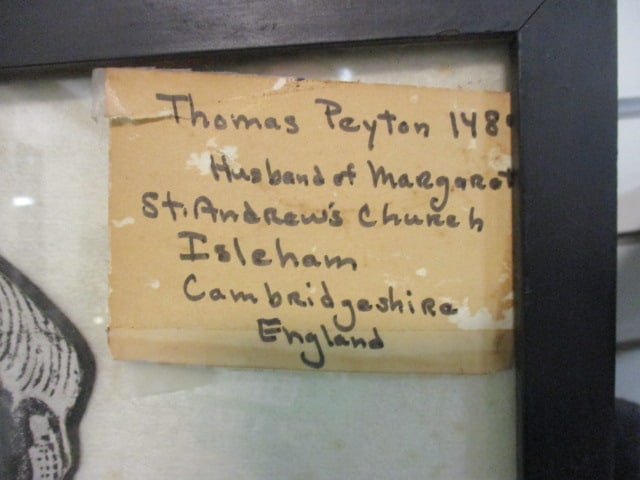 Thomas Peyton 148
Husband of Margaret
St. Andrew's Church
Isleham
Cambridgeshire
England